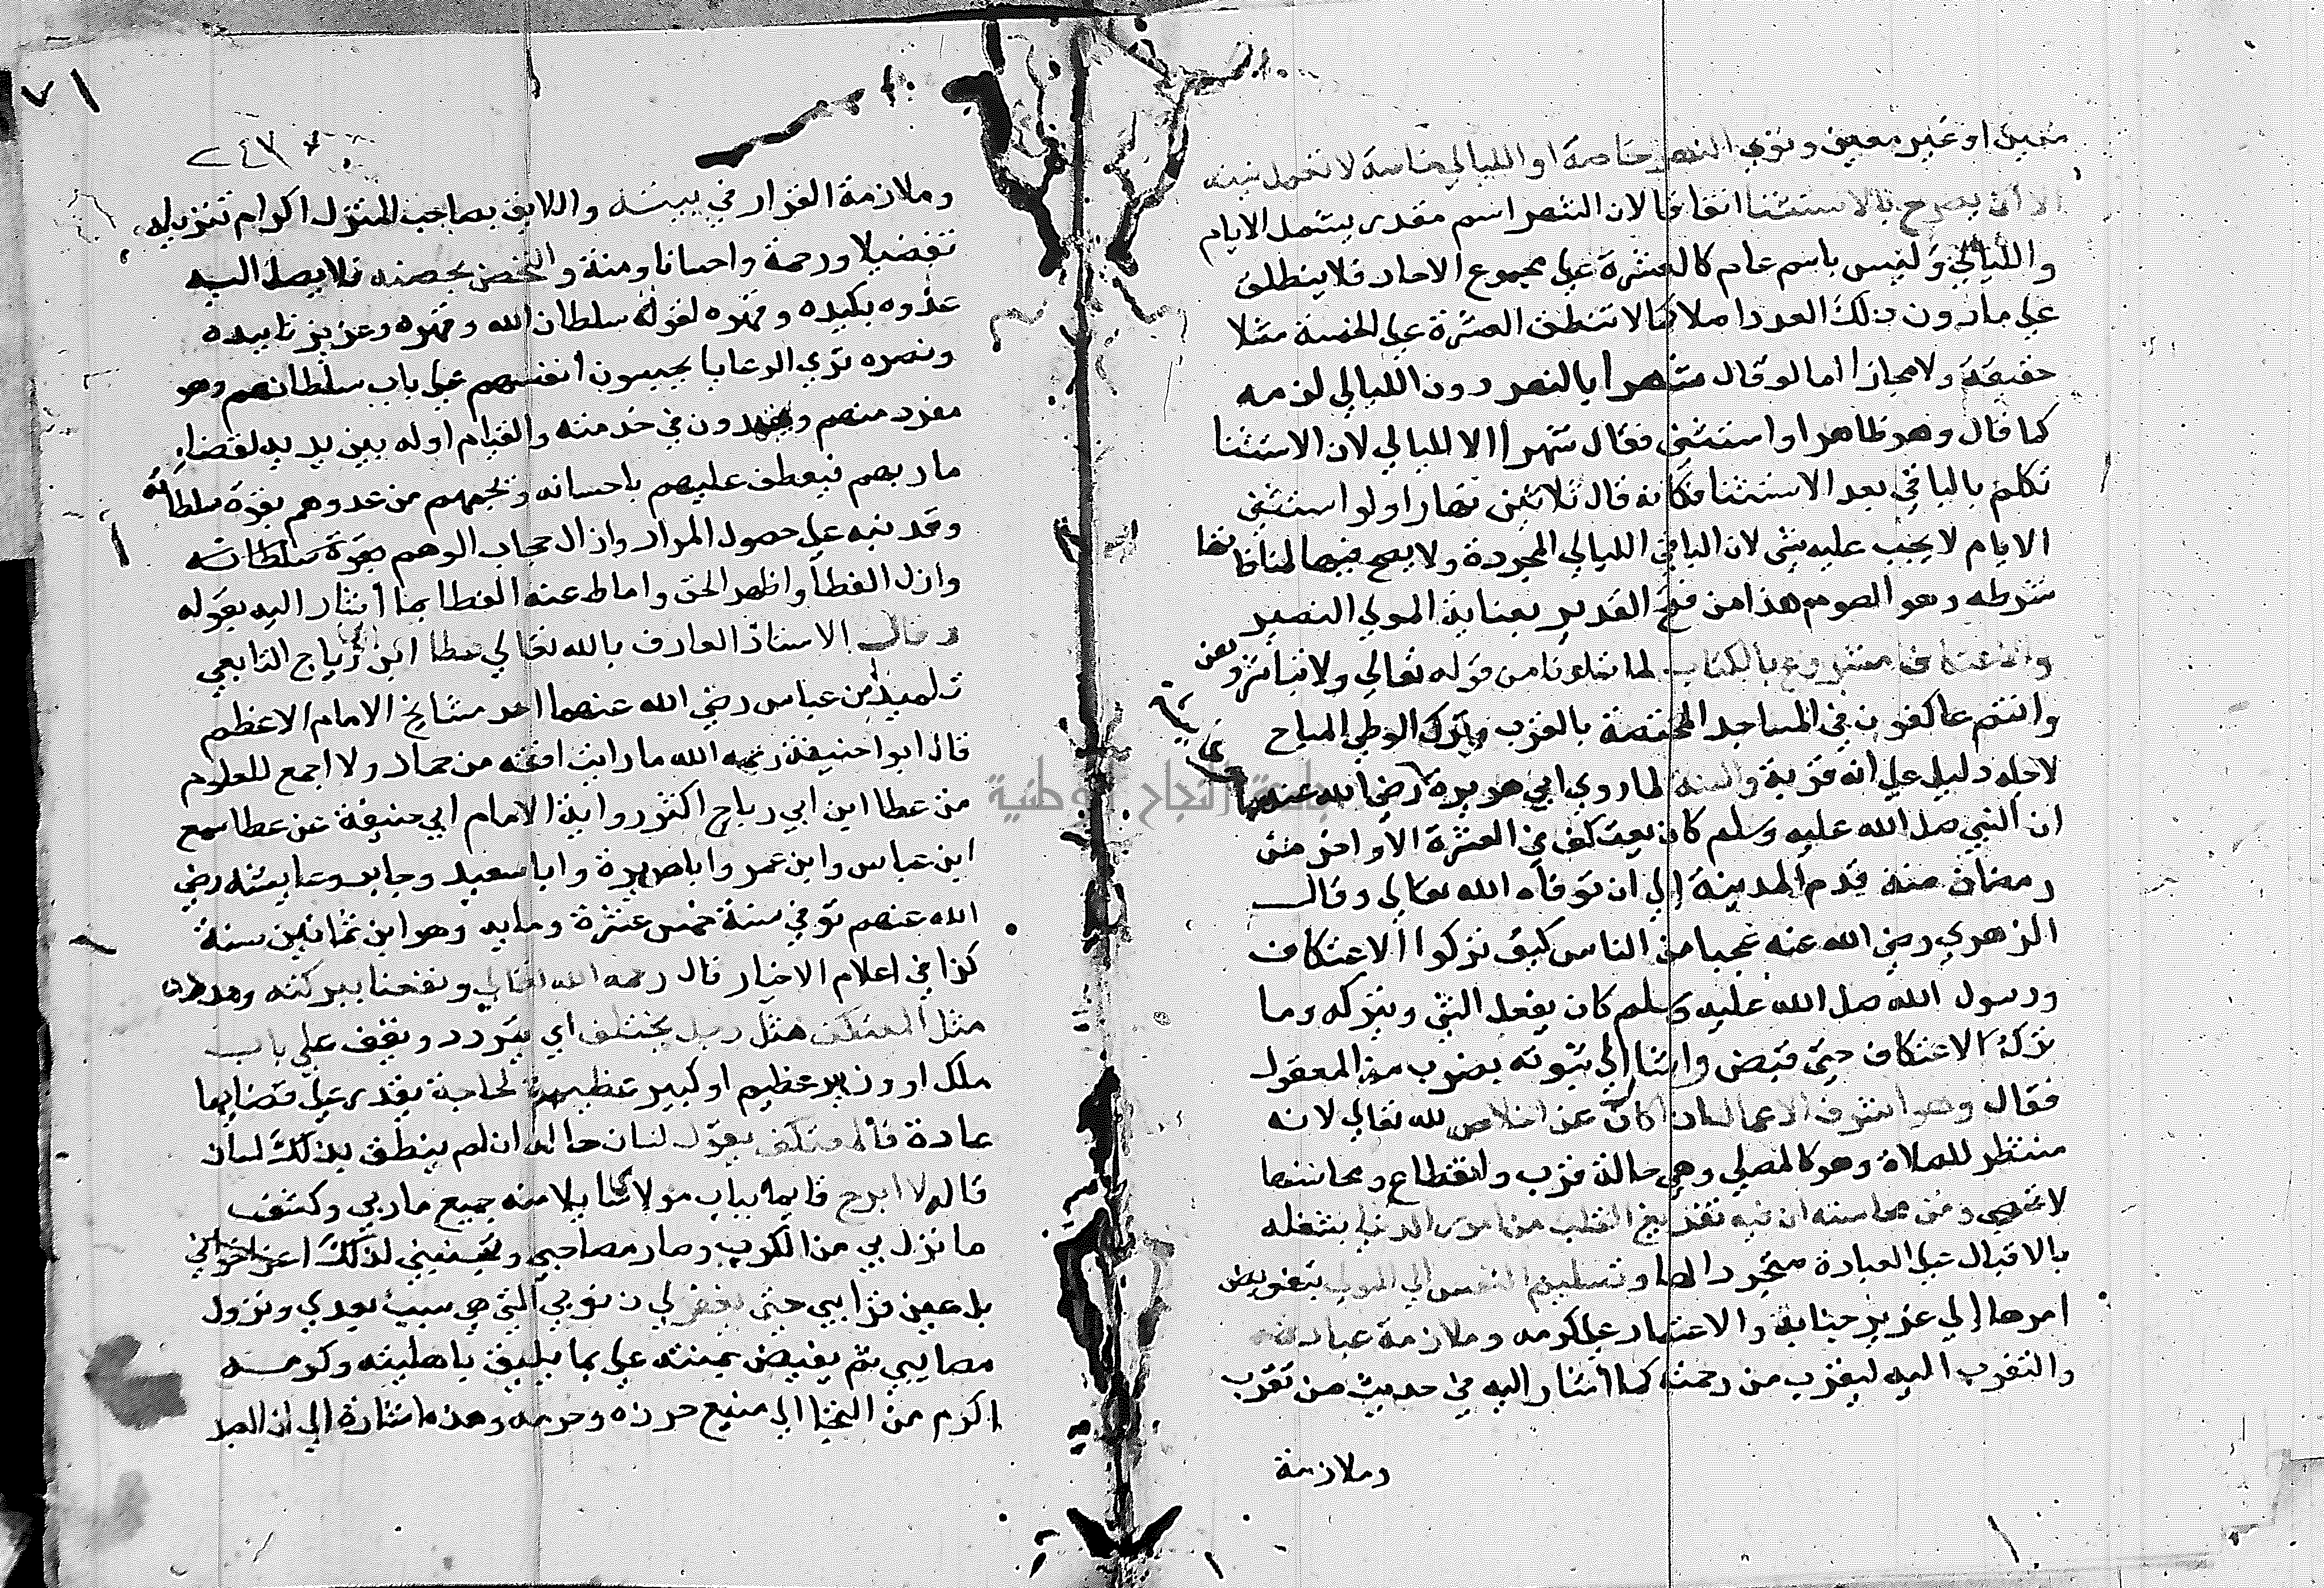 معين او غير معين ونوي النهر خاصة او الليالي خاصة لا تعمل نيته
الا ان يصرح بالاستثنا اتفاقا لان الشهر اسم مقدر يشمل الايام
والليالي وليس باسم عام كالعشرة علي مجموع الاحاد فلا ينطلق
علي مادون ذلك العدد اصلا كما لا تنطق العشرة علي الخمسة مثلا
حقيقة ولا مجازا اما لو قال شهرا بالنهر دون الليالي لزمه
كما قال وهو ظاهر او استثني فقال شهرا الا الليالي لان الاستثنا
تكلم بالباقي بعد الاستثنا فكانه قال ثلاثين نهارا ولو استثني
الايام لا يجب عليه شي لان الباقي الليالي المجردة ولا يصح فيها لمنافاتها
شرطه وهو الصوم هذا من فتح القدير بعناية المولي النصير
والاعتكاف مشروع بالكتاب لما تلونا من قوله تعالي ولا تباشروهن
وانتم عاكفون في المساجد المختصة بالقرب وترك الوطي المباح
لاجله دليل علي انه قربة والسنة لما روي ابي هريرة رضي الله عنهما
ان النبي صل الله عليه وسلم كان يعتكف في العشرة الاواخر من
رمضان منه قدم المدينة الي ان توفاه الله تعالي وقال
الزهري رضي الله عنه عجبا من الناس كيف تركوا الاعتكاف
ورسول الله صل الله عليه وسلم كان يفعل الشي ويتركه وما
ترك الاعتكاف حتي قبض واشار الي ثبوته بضرب من المعقول
فقال وهو اشرف الاعمال ان كان عن اخلاص لله تعالي لانه
منتظر للصلاة وهو كالمصلي وهي حالة قرب وانقطاع ومحاسنها
لا تحصي ومن محاسنه ان فيه تفريغ القلب من امور الدنيا بشغله
بالاقبال علي العبادة متجردا لها وتسليم النفس الي المولي بتفويض
امرها الي عزيز جنابه والاعتماد علي كرمه وملازمة عبادته
والتقرب اليه ليقرب من رحمته كما اشار اليه في حديث من تقرب
وملازمة
٧١
٢٤٧
وملازمة القرار في بيته واللايق بصاحب المنزل اكرام تنزيله
تفضيلا ورحمة واحسانا ومنة والتحصن بحصنه فلا يصل اليه
عدوه بكيده وقهره لقوله سلطان الله وقهره وعزيز تاييده
ونصره تري الرعايا يحبسون انفسهم علي باب سلطانهم وهو
مفرد منهم ويجدون في خدمته والقيام اوله بين يديه لقضا
ماربهم فيعطف عليهم باحسانه ويحميهم من عدوهم بقوة سلطانه
وقد نبه علي حصول المراد وازال حجاب الوهم بقوة سلطانه
وازل الغطا واظهر الحق واماط عنه الغطا بما اشار اليه بقوله
وقال الاستاذ العارف بالله تعالي عطا ابن ابي رباح التابعي
تلميذ بن عباس رضي الله عنهما احد مشايخ الامام الاعظم
قال ابوا حنيفة رحمه الله ما رايت افقه من حماد ولا اجمع للعلوم
من عطا ابن ابي رباح اكثر رواية الامام ابي حنيفة عن عطا سمع
ابن عباس وابن عمر وابا هريرة وابا سعيد وجابر وعايشة رضي
الله عنهم توفي سنة خمس عشرة وماية وهو ابن ثمانين سنة
كذا في اعلام الاخيار قال رحمه الله تعالي ونفعنا ببركته ومدده
مثل المعتكف مثل رجل يختلف اي يتردد ويقف علي باب
ملك او وزير عظيم او كبير عظيم لحاجة يقدر علي قضايها
عادة فالمعتكف يقول لسان حاله ان لم ينطق بذلك لسان
قاله لا ابرح قايما بباب مولاي سايلا منه جميع ماربي وكشف
ما نزل بي من الكرب وصار مصاحبي لذلك اعز اخواني
بل عين قرابيي حتي يغفر لي ذنوبي التي هي سبب بعدي ونزول
مصايبي ثم يفيض بمنته علي بما يليق باهليته وكرمه
اكرم من التجا الي منيع حرزه وحرمه وهذه اشارة الي ان العبد